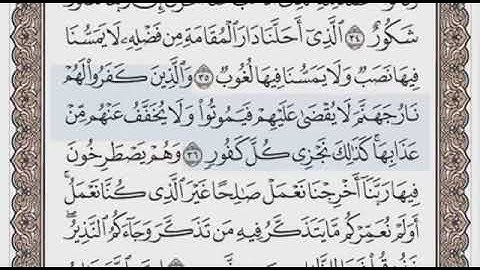 شَكُورٌ ٣٤ ٱلَّذِىٓ أَحَلَّنَا دَارَ ٱلْمُقَامَةِ مِن فَضْلِهِۦ لَا يَمَسُّنَا
فِيهَا نَصَبٌ وَلَا يَمَسُّنَا فِيهَا لُغُوبٌ ٣٥ وَٱلَّذِينَ كَفَرُوا۟ لَهُمْ
نَارُ جَهَنَّمَ لَا يُقْضَىٰ عَلَيْهِمْ فَيَمُوتُوا۟ وَلَا يُخَفَّفُ عَنْهُم مِّنْ
عَذَابِهَا ۚ كَذَٰلِكَ نَجْزِى كُلَّ كَفُورٍ ٣٦ وَهُمْ يَصْطَرِخُونَ
فِيهَا رَبَّنَآ أَخْرِجْنَا نَعْمَلْ صَٰلِحًا غَيْرَ ٱلَّذِى كُنَّا نَعْمَلُ ۚ
أَوَلَمْ نُعَمِّرْكُم مَّا يَتَذَكَّرُ فِيهِ مَن تَذَكَّرَ وَجَآءَكُمُ ٱلنَّذِيرُ ۖ